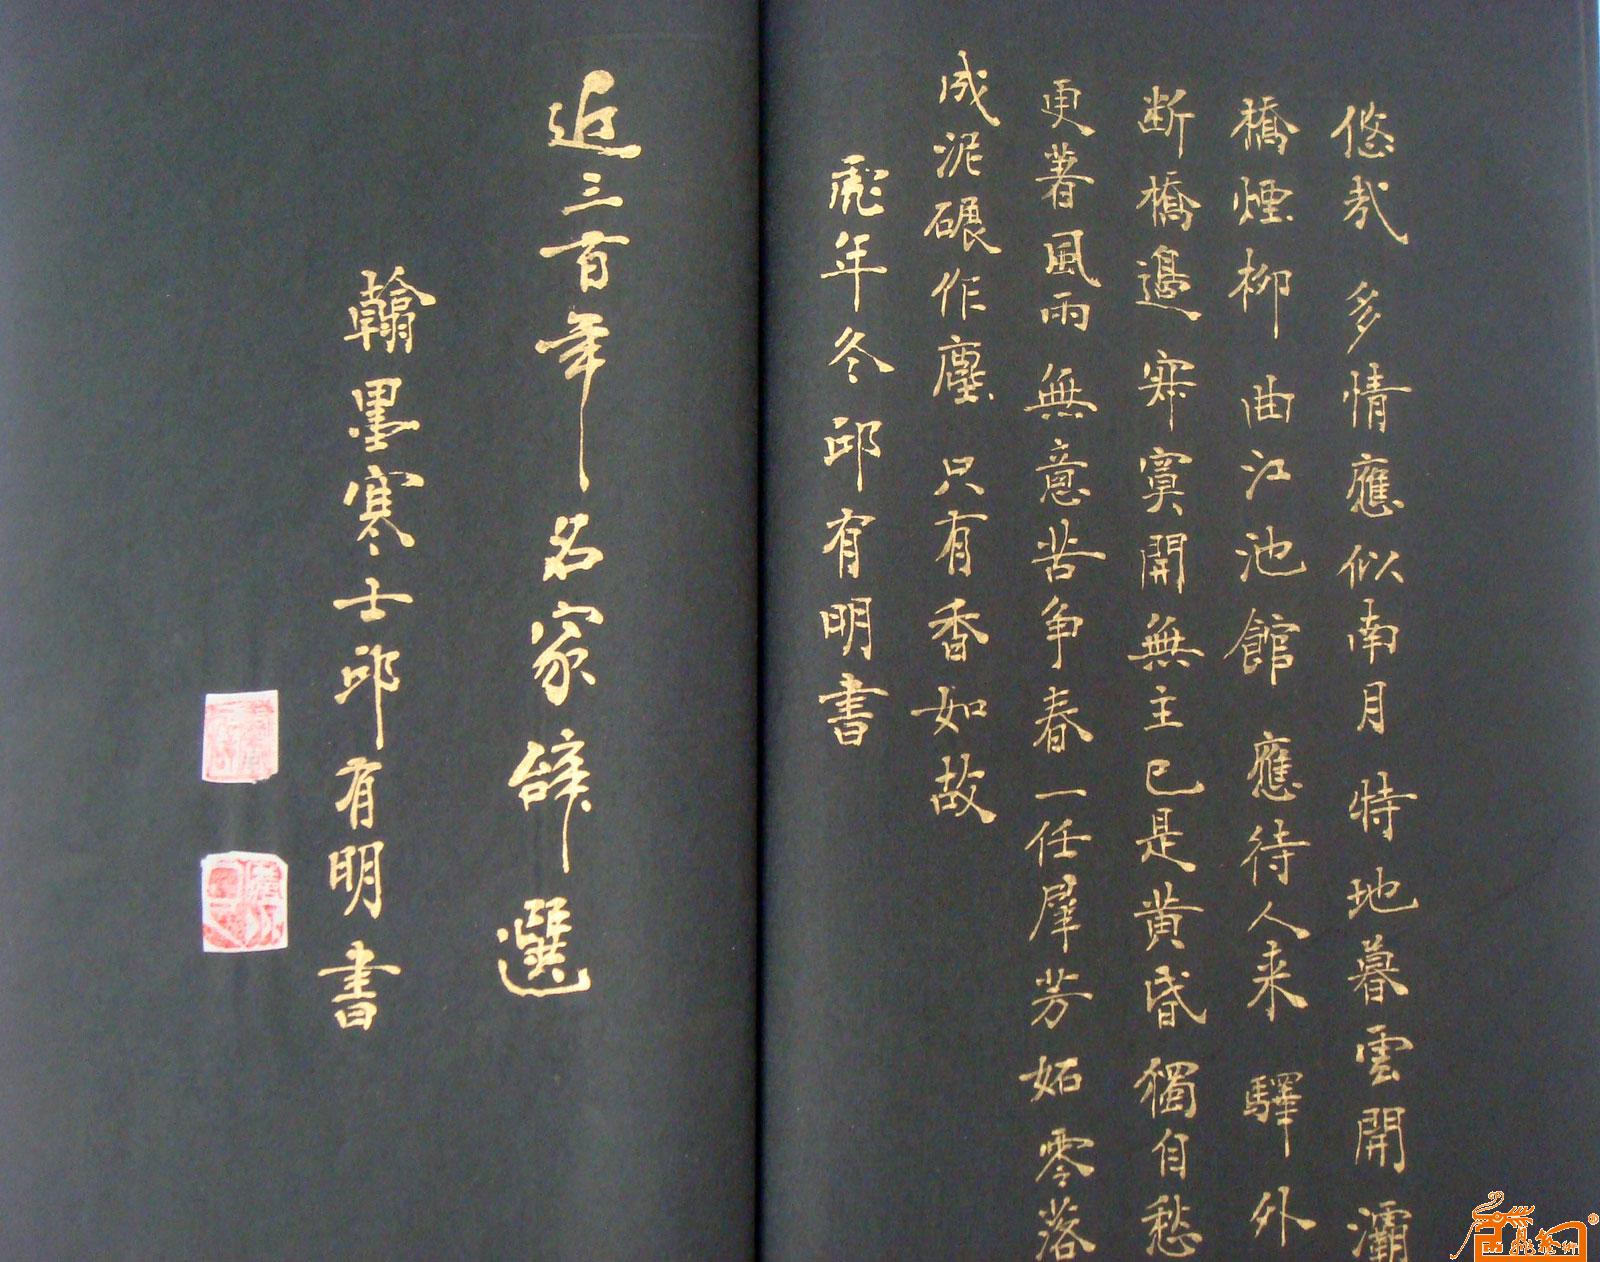 悠哉 多情應似南月 特地暮雲開 灞
橋煙柳 曲江池館 應待人来 驛外
断橋邊 寂寞開無主 已是黄昏 獨自愁
更著風雨 無意苦争春 一任羣芳妬 零落
成泥碾作塵 只有香如故
虎年冬邱有明書
近三百年名家辞選
翰墨寒士邱有明書